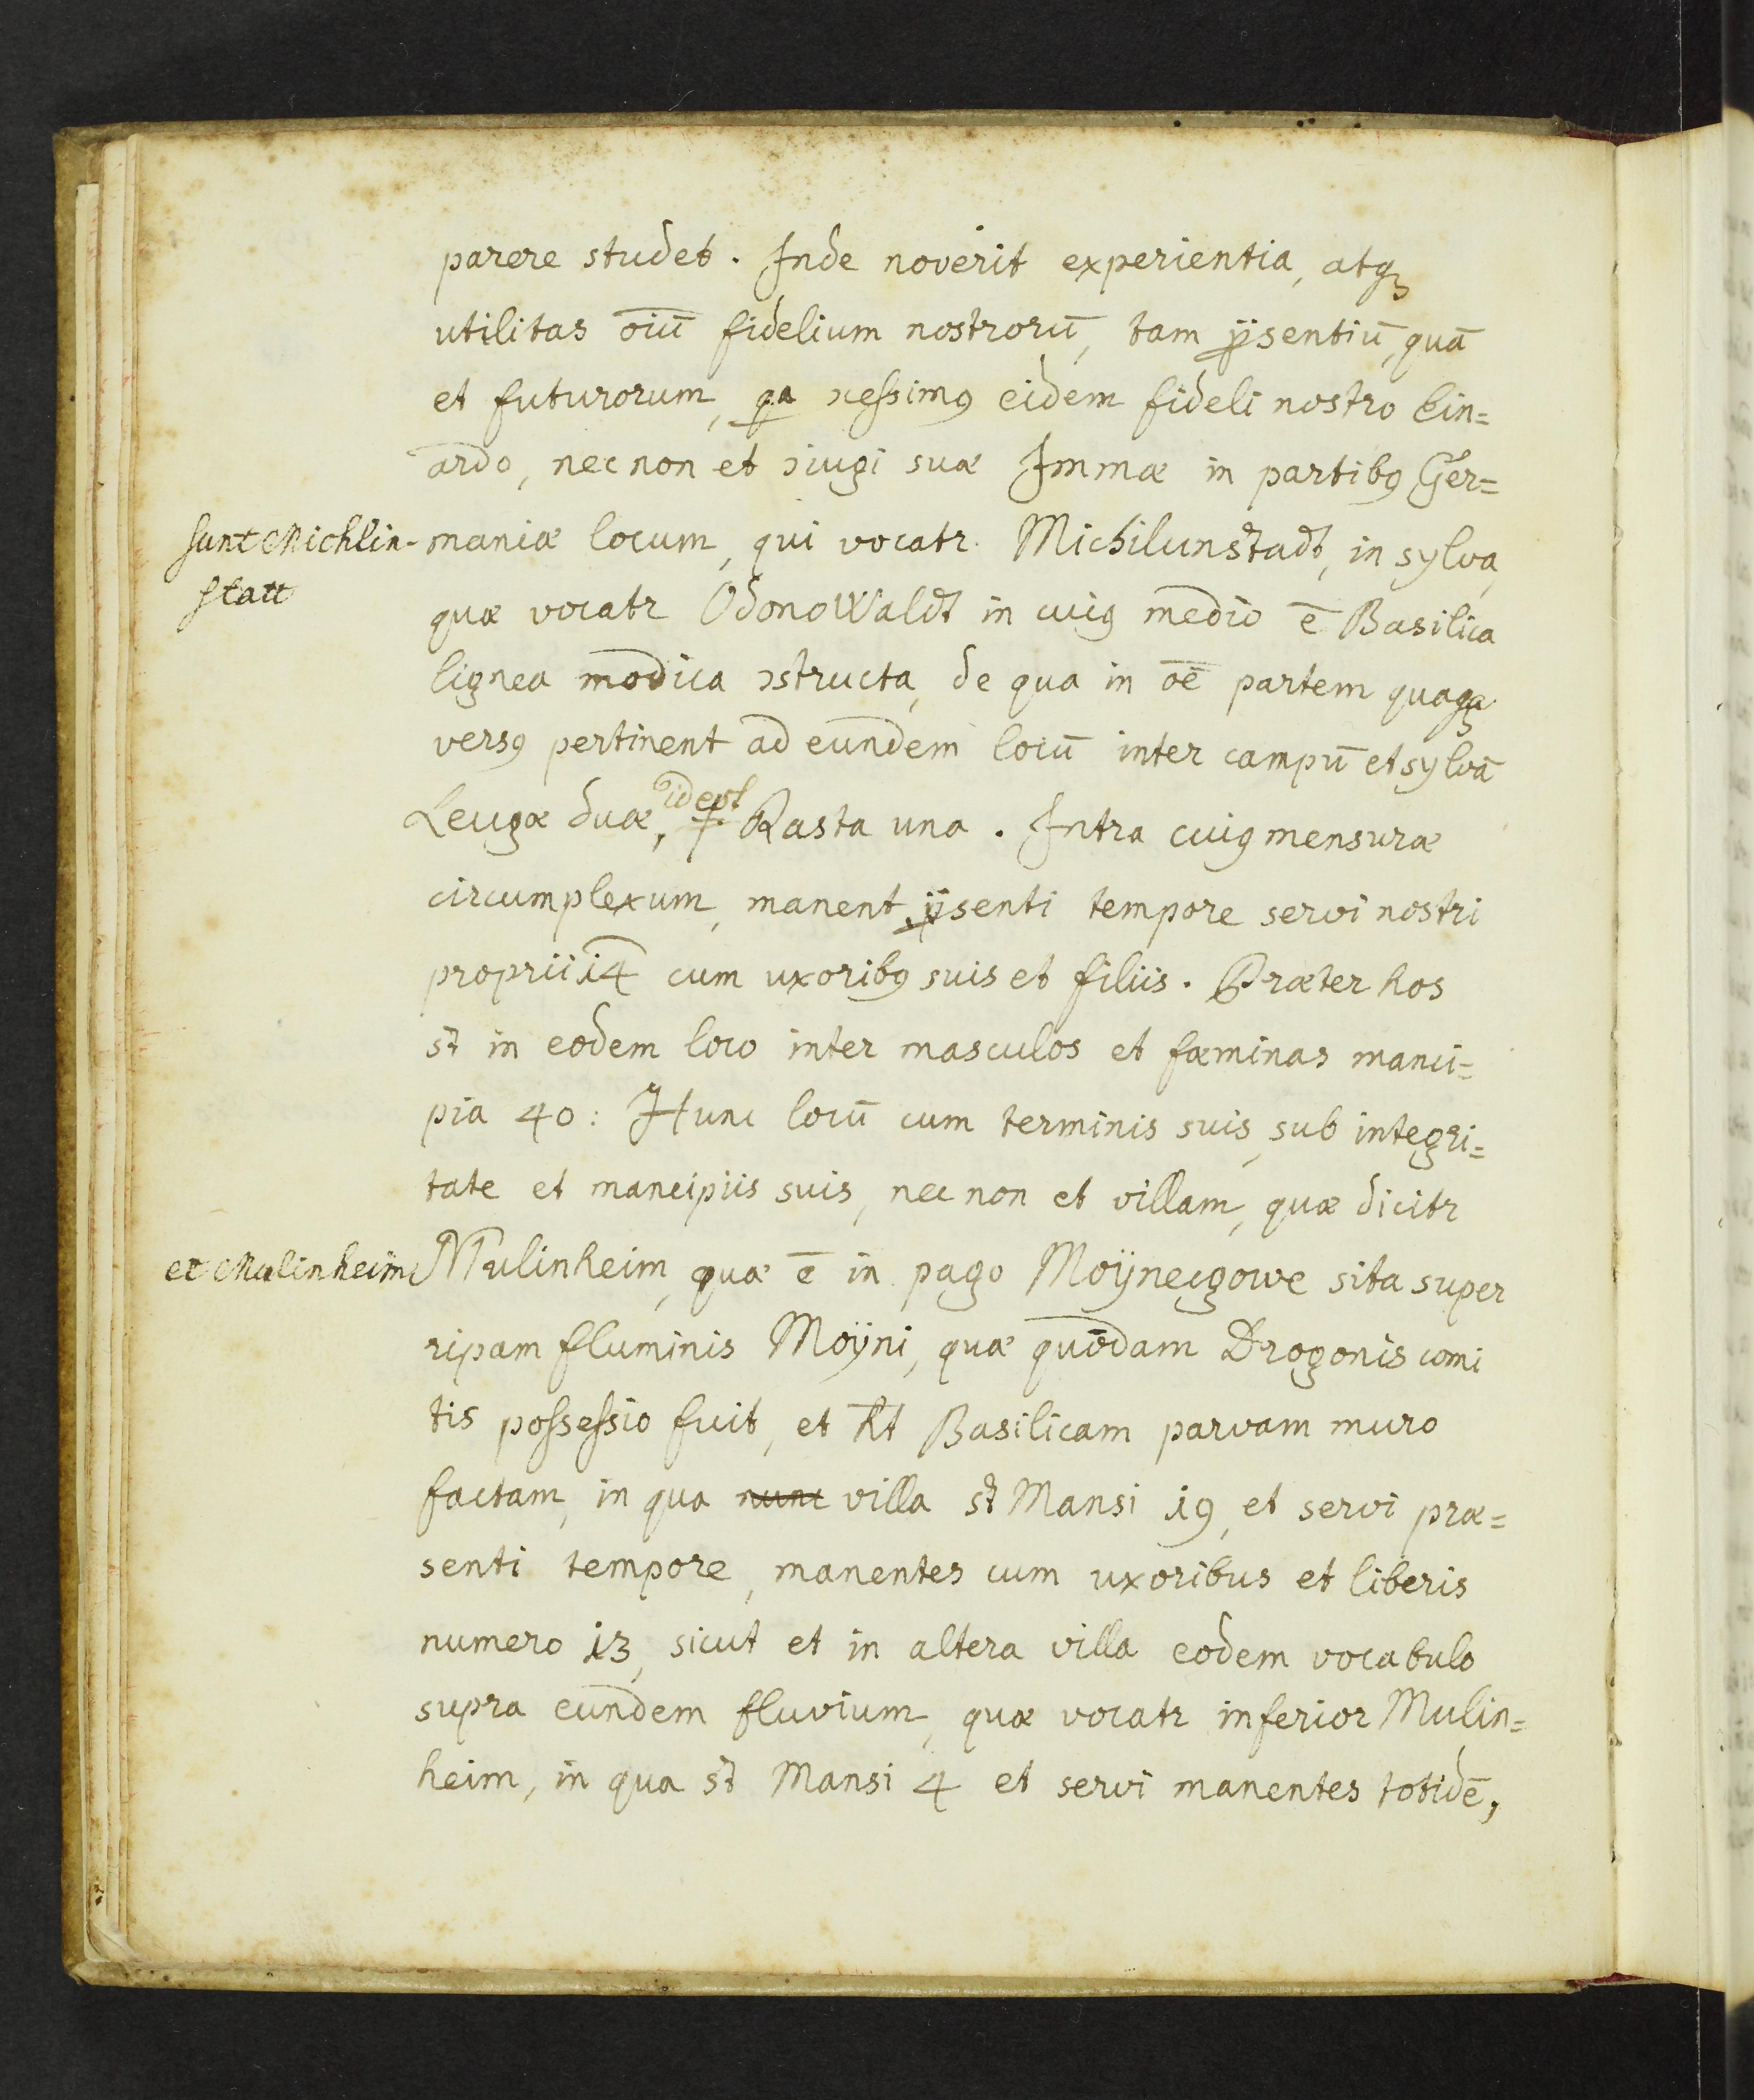 parere studet. Inde noverit experientia, atqȝ
utilitas oīū fidelium nostrorū, tam p̈sentiū, quā
et futurorum, qa ɔcessimꝯ eidem fideli nostro Ein=
ardo, nec non et ɔiugi suæ Immæ in partibꝯ Ger=
sunt Michlin-
statt
maniæ locum, qui vocatr. Michilunstadt, in sylva,
quæ vocatr OdonoWaldt in cuiꝯ medio ē Basilica
lignea modica ɔstructa, de qua in oē partem quaqȝ
versꝯ pertinent ad eundem locū inter campū et sylvā
Leugæ duæ, id est Rasta una. Intra cuiꝯ mensuræ
circumplexum, manent p̈senti tempore servi nostri
proprii 14 cum uxoribꝯ suis et filiis. Præter hos
st in eodem loco inter masculos et fœminas manci=
pia 40: Hunc locū cum terminis suis, sub integri=
tate et mancipiis suis, nec non et villam, quæ dicitr
et Mulinheim
Mulinheim, quæ ē in pago Moÿnecgowe sita super
ripam fluminis Moÿni, quæ quōdam Drogonis comi
tis possessio fuit, et h̄t Basilicam parvam muro
factam, in qua nunc villa st Mansi 19, et servi præ=
senti tempore, manentes cum uxoribus et liberis
numero 13, sicut et in altera villa eodem vocabulo
supra eundem fluvium, quæ vocatr inferior Mulin=
heim, in qua st Mansi 4 et servi manentes totidē,